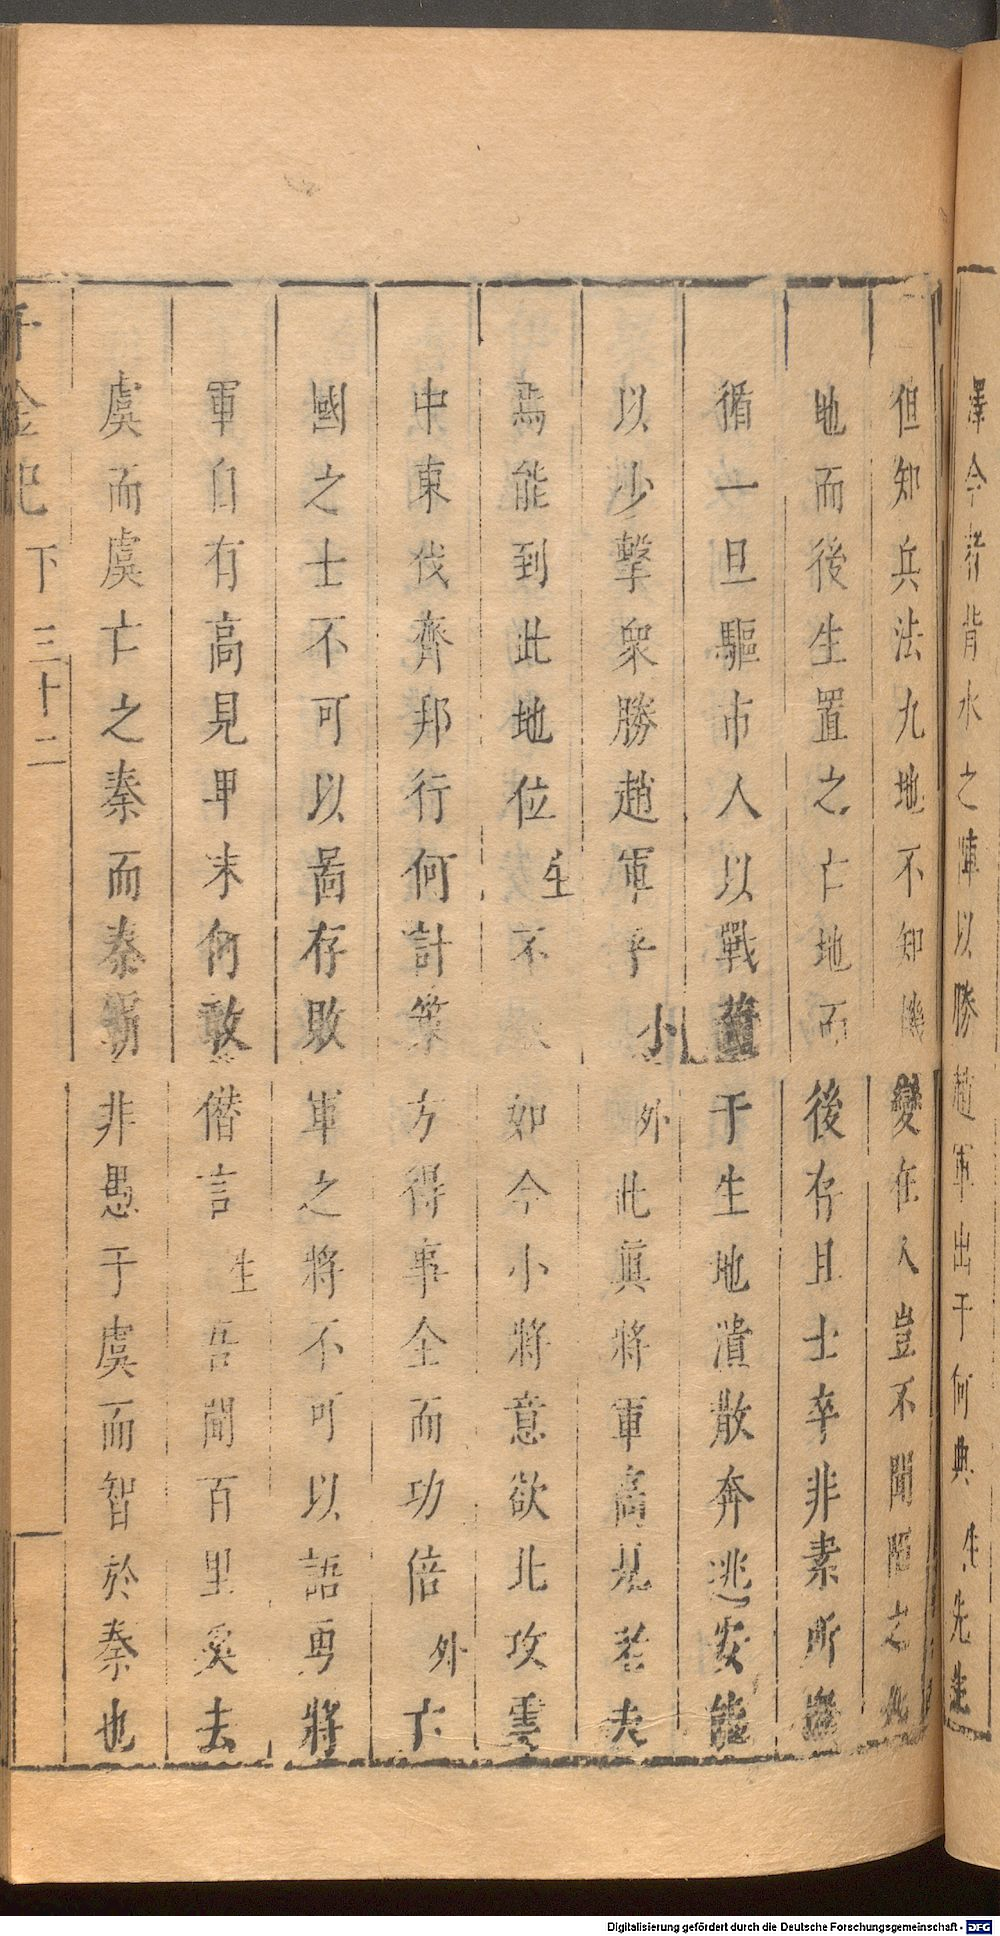 澤今者背水之陣以勝趙軍出于何典生先生
但知兵法九地不知機變在人豈不聞陷之死
地而後生置之亡地而後存且士卒非素所
循一旦驅市人以戰置于生地潰散奔逃安能
以少擊衆勝趙軍乎小外此眞將軍高見老夫
焉能到此地位生不如今小將意欲北攻燕
中東伐齊邦行何計策方得事全而功倍外亡
國之士不可以啚存敗軍之將不可以語勇將
軍自有高見甲末何敢僭言生吾聞百里奚去
虞而虞亡之秦而秦霸非愚于虞而智於秦也
千金記 下 三十二
Digitalisierung gefördert durch die Deutsche Forschungsgemeinschaft - DFG